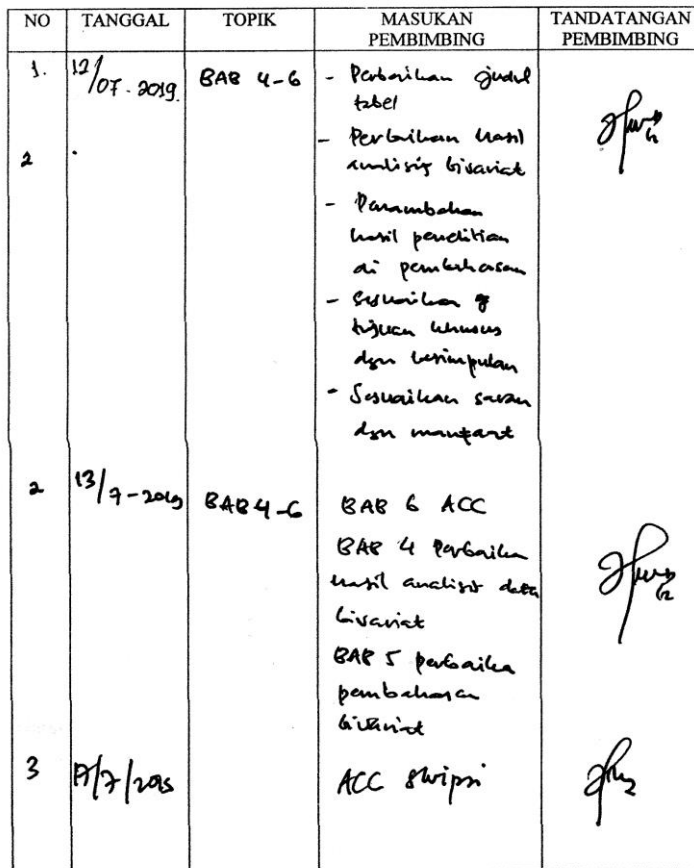 NO TANGGAL TOPIK MASUKAN PEMBIMBING TANDATANGAN PEMBIMBING
1. 12/07-2019. BAB 4-6 - Perbaikan judul
tabel
- Perbaikan hasil
2 analisis bivariat
- Penambahan
hasil penelitian
di pembahasan
- Sesuaikan
tujuan khusus
dgn kesimpulan
- Sesuaikan saran
dgn manfaat
2 13/7-2019 BAB 4-6 BAB 6 ACC
BAB 4 Perbaikan
hasil analisis data
bivariat
BAB 5 perbaikan
pembahasan
bivariat
3 ACC skripsi